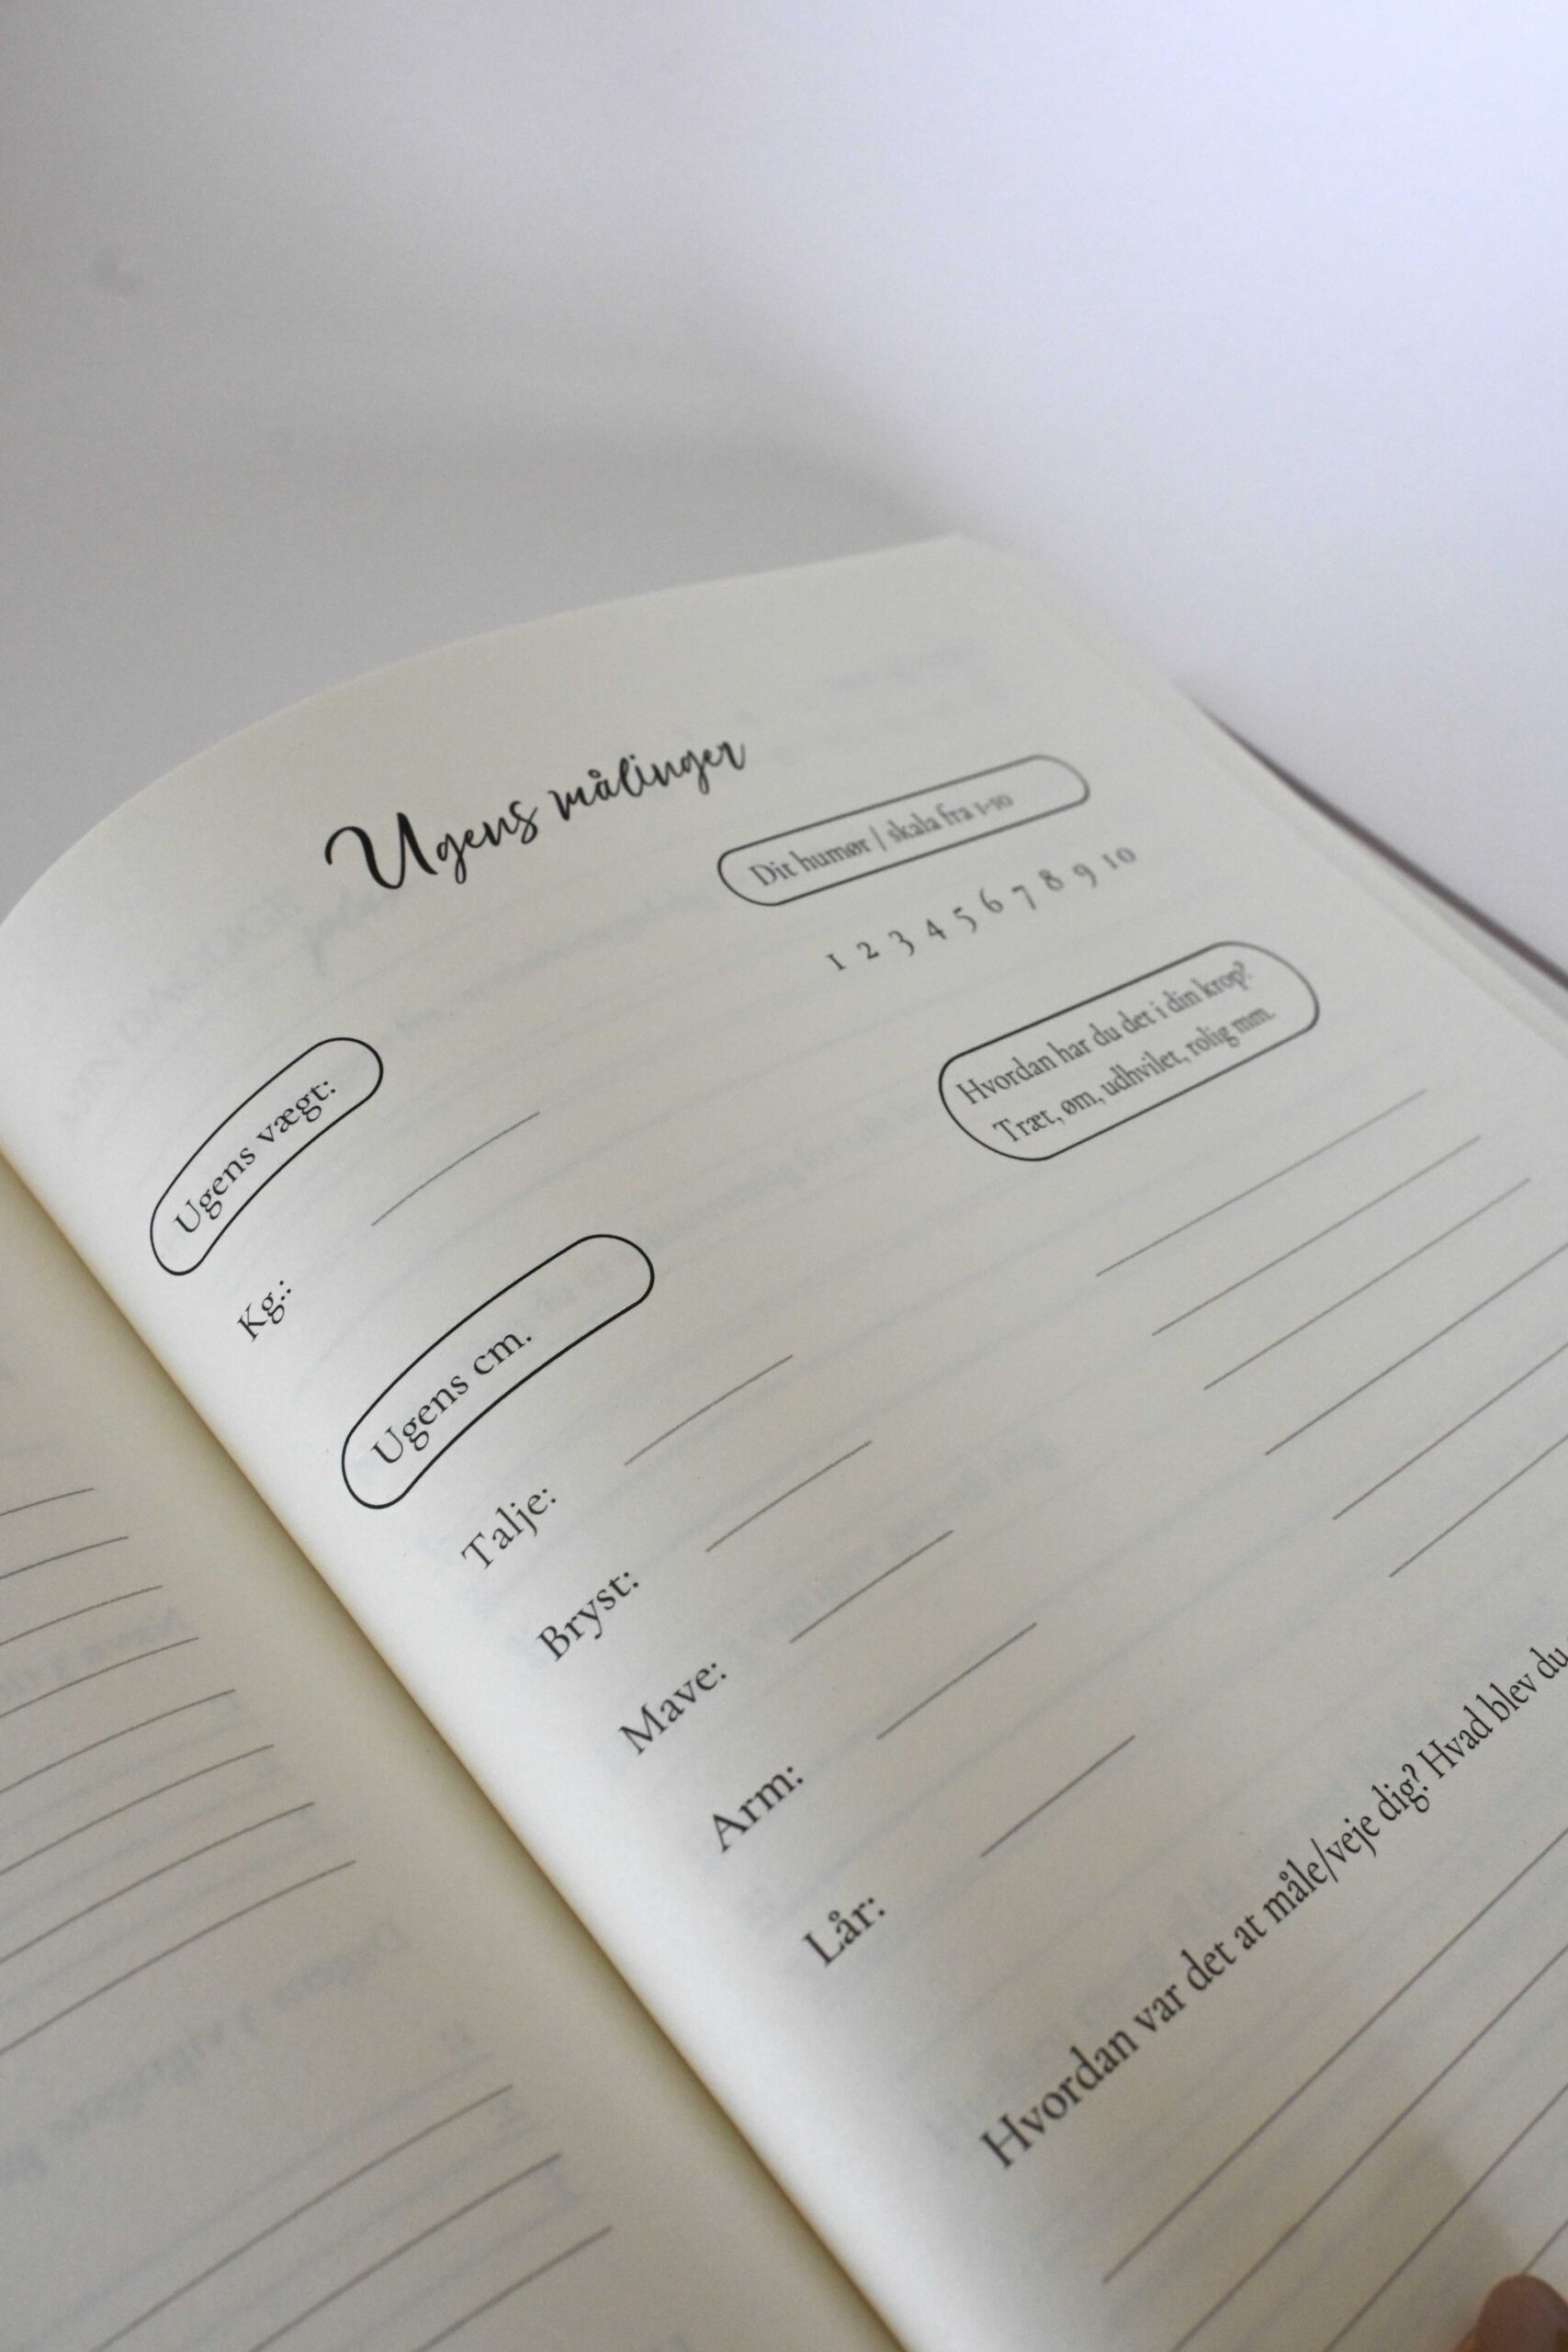 Ugens målinger
Dit humør / skala fra 1-10
1 2 3 4 5 6 7 8 9 10
Hvordan har du det i din krop?
Træt, øm, udhvilet, rolig mm.
Ugens vægt:
Kg.:
Ugens cm.
Talje:
Bryst:
Mave:
Arm:
Lår:
Hvordan var det at måle/veje dig? Hvad blev du